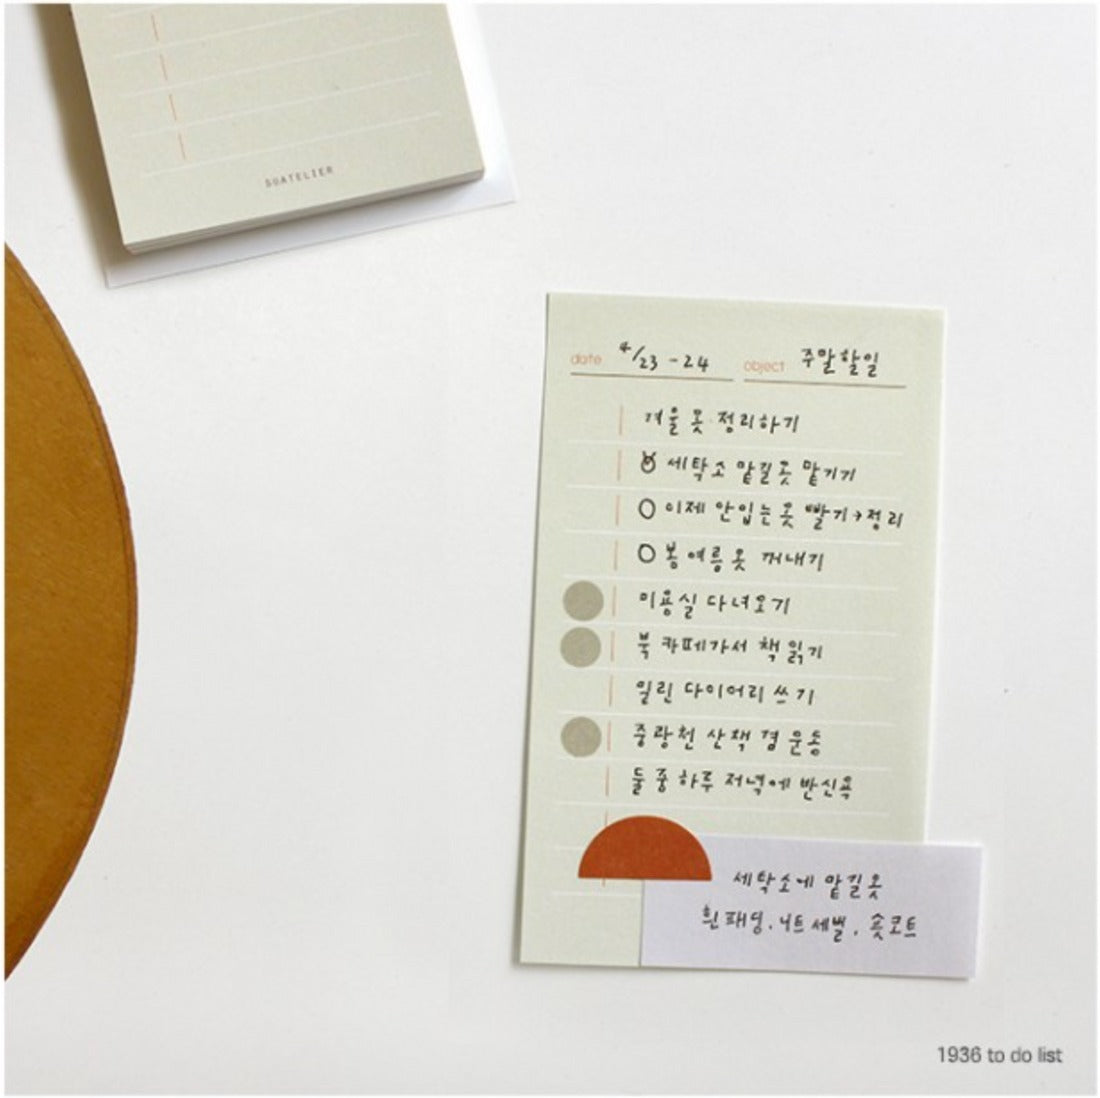 SUATELIER
date 4/23 - 24 object 주말할일
겨울 옷 정리하기
세탁소 맡길옷 맡기기
이제 안입는 옷 빨기→정리
봄 여름 옷 꺼내기
미용실 다녀오기
북카페가서 책 읽기
밀린 다이어리 쓰기
중랑천 산책 겸 운동
둘 중 하루 저녁에 반신욕
세탁소에 맡길옷
흰패딩, 니트세벌, 숏코트
1936 to do list